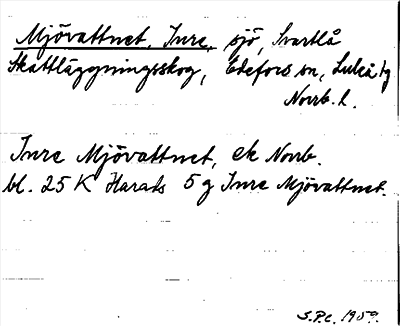 Mjövattnet, Inre, sjö, Svartlå
Skattläggningsskog, Edefors sn, Luleå tg
Norrb. l.
Inre Mjövattnet, ek Norrb.
bl. 25 K Harads 5 g Inre Mjövattnet.
S.P.C. 1959.